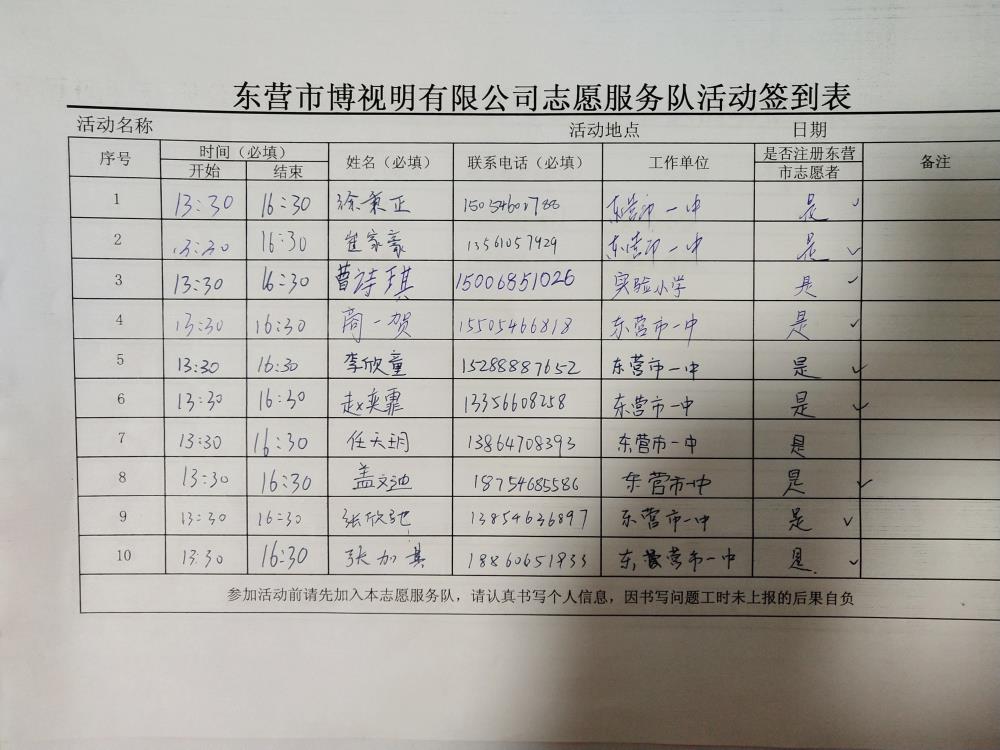 东营市博视明有限公司志愿服务队活动签到表
活动名称 活动地点 日期
序号 时间（必填） 姓名（必填） 联系电话（必填） 工作单位 是否注册东营市志愿者 备注
开始 结束
1 13:30 16:30 徐秉正 东营市一中 是 ✓
2 13:30 16:30 崔家豪 13561057929 东营市一中 是 ✓
3 13:30 16:30 曹诗琪 15006851026 实验小学 是 ✓
4 13:30 16:30 周一贺 15505466818 东营市一中 是 ✓
5 13:30 16:30 李欣童 15288887652 东营市一中 是 ✓
6 13:30 16:30 赵奕霏 13356608258 东营市一中 是 ✓
7 13:30 16:30 任天玥 13864708393 东营市一中 是
8 13:30 16:30 盖文迪 18754685586 东营市一中 是 ✓
9 13:30 16:30 张欣驰 13854636897 东营市一中 是 ✓
10 13:30 16:30 张加其 18860651933 东营市一中 是 ✓
参加活动前请先加入本志愿服务队，请认真书写个人信息，因书写问题工时未上报的后果自负